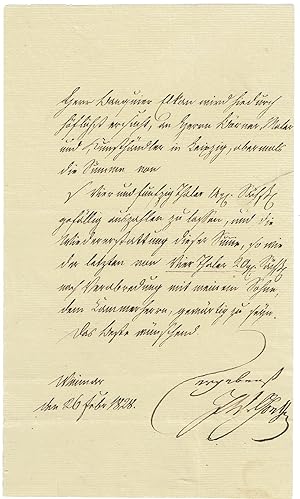 Herr Banquier Elkan wird hiedurch
höflichst ersucht, an Herrn Börner, Maler
und Kunsthändler in Leipzig, abermals
die Summe von
Vier und funfzig Thaler Sächß
gefällig auszahlen zu lassen, und die
Wiedererstattung dieser Sume, so wie
der letzten von Vier Thaler Sächß
nach Verabredung mit meinem Sohne,
dem Cammerherrn, gewärtig zu seyn.
Das Beste wünschend.
Weimar
ergebenst
den 26 Febr 1828.
JWvGoethe